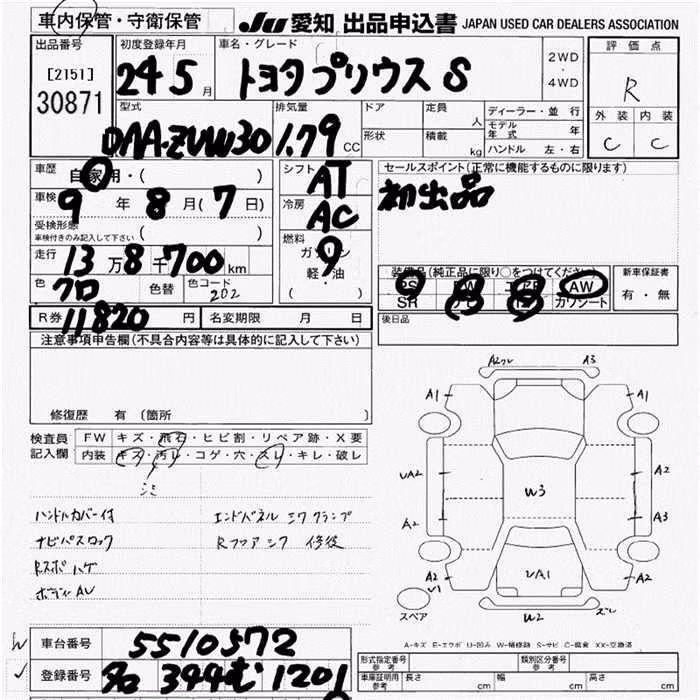 車内保管・守衛保管
JU 愛知 出品申込書 JAPAN USED CAR DEALERS ASSOCIATION
出品番号
[2151]
30871
初度登録年月
24 5 月
車名・グレード
トヨタ プリウス S
2WD
・
4WD
評価点
R
外装 内装
C C
型式
DAA-ZVW30
排気量
1.79 CC
ドア
形状
定員 人
積載 kg
ディーラー・並行
モデル年式 年
ハンドル 左・右
車歴
自家用・( )
車検
9 年 8 月( 7 日)
受検形態
車検付きのみ記入して下さい ( )
走行
13 万 8 千 700 km
色
クロ
色替
色コード
202
シフト
AT
冷房
AC
燃料
ガソリン
軽・油
( )
セールスポイント(正常に機能するものに限ります)
初出品
装備品(純正品に限り○をつけてください)
PS PW エアB AW
SR ガワシート
新車保証書
有・無
R券
11820 円
名変期限 月 日
後日品
注意事項申告欄(不具合内容等は具体的に記入して下さい)
修復歴 有 〔箇所
検査員
記入欄
FW キズ・飛石・ヒビ割・リペア跡・X要
内装 キズ・汚レ・コゲ・穴・スレ・キレ・破レ
シミ
ハンドルカバー付
ナビパスロック
Rスポ ハゲ
ボディAU
エンドパネル ミワ クランプ
Rフロア シワ 修後
A2ワレ A3
A1 A1
UA2 A2
W3
A2 A3
A2 A2
U1
UA1
スペア
W2 ズレ
A-キズ E-エクボ U-凹み W-補修跡 S-サビ C-腐食 XX-交換済
車台番号
5510572
登録番号
名 344 む 1201
形式指定番号
参考
類別区分番号
参考
車庫証明用
参考
長さ cm
幅 cm
高さ cm